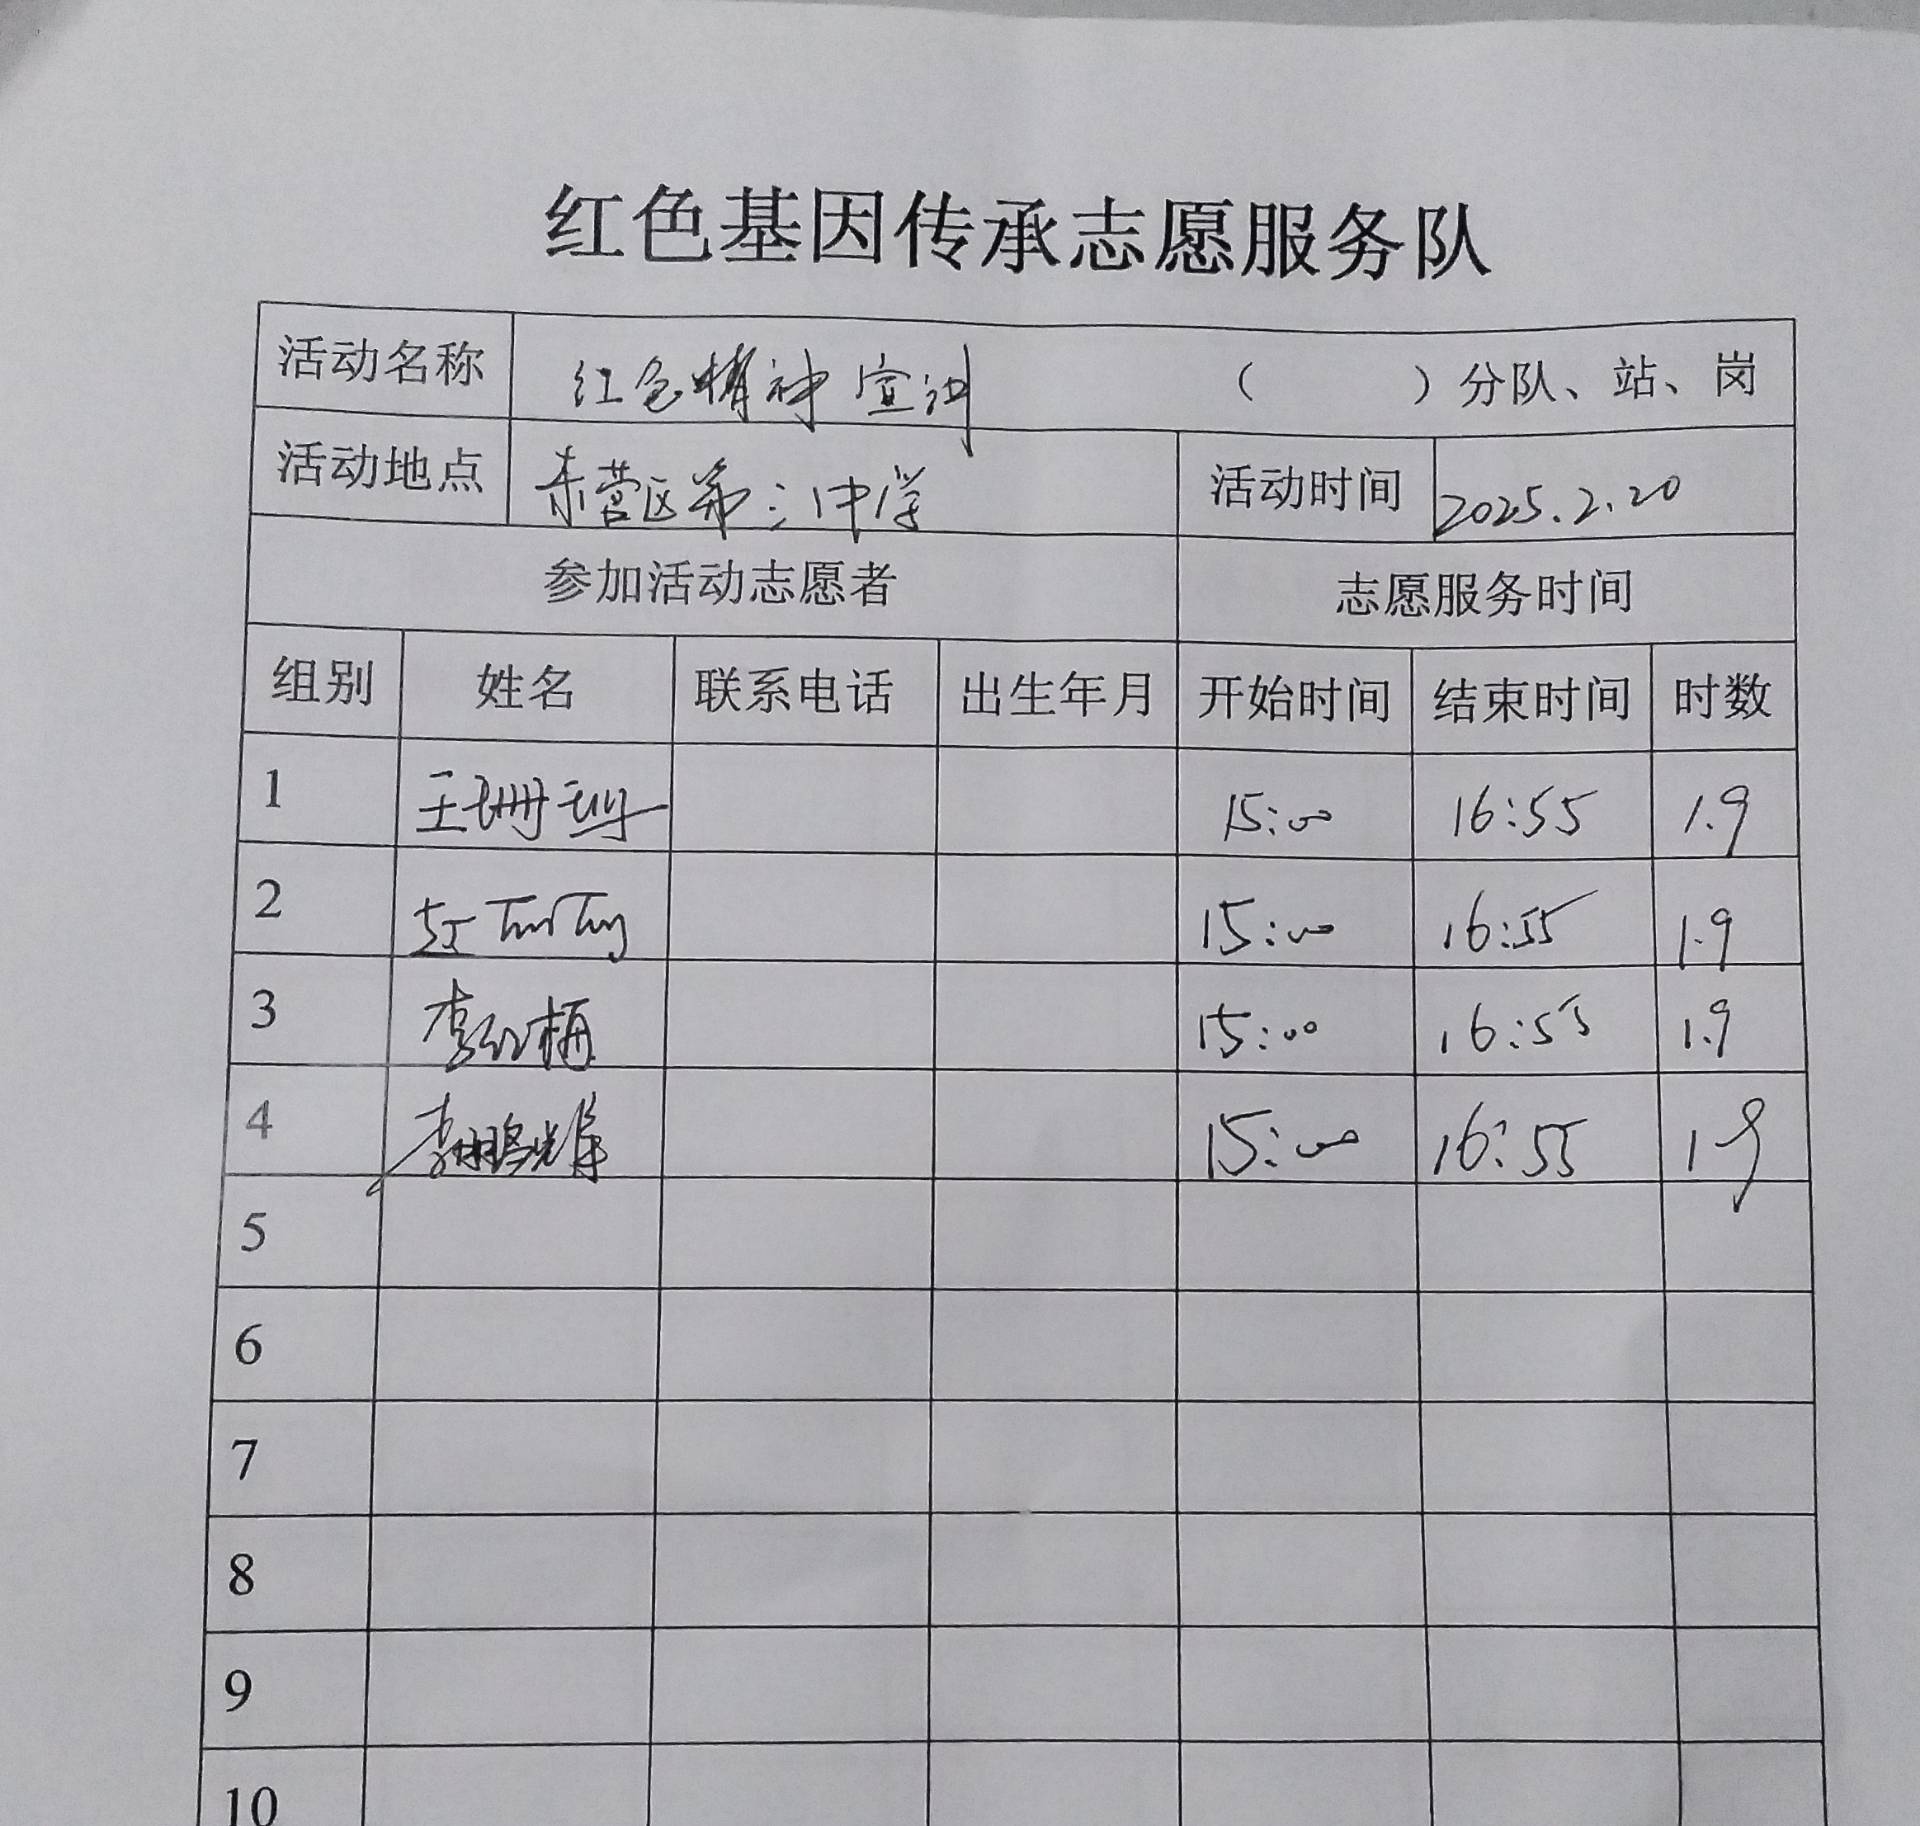 红色基因传承志愿服务队
活动名称 红色精神宣讲 （ ）分队、站、岗
活动地点 东营区第三中学 活动时间 2025.2.20
参加活动志愿者 志愿服务时间
组别 姓名 联系电话 出生年月 开始时间 结束时间 时数
1 王珊珊 15:00 16:55 1.9
2 15:00 16:55 1.9
3 李红梅 15:00 16:55 1.9
4 李鹏辉 15:00 16:55 1.9
5
6
7
8
9
10